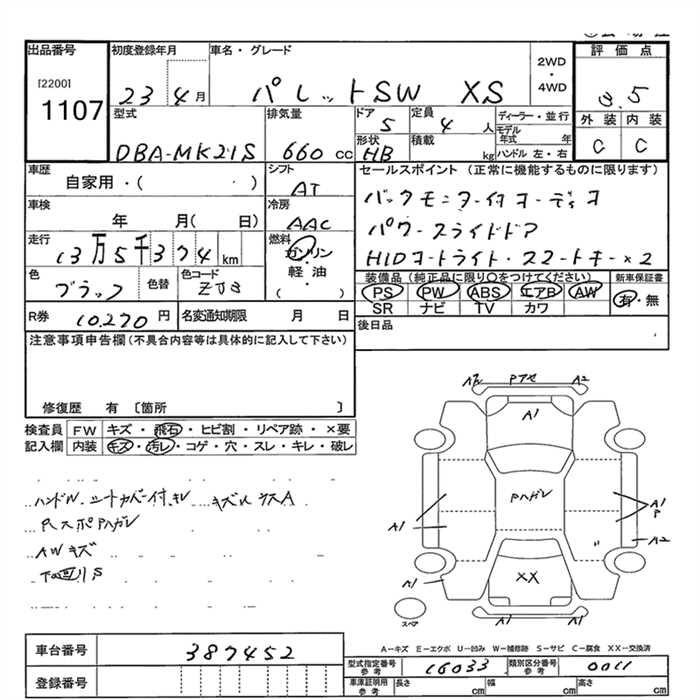 出品番号 初度登録年月 車名・グレード 評価点
[2200]
1107
23 4月 パレットSW XS 2WD・4WD 3.5
型式 排気量 ドア 5 定員 4人 ディーラー・並行 外装 内装
DBA-MK21S 660cc 形状 HB 積載 kg モデル年式 年 ハンドル 左・右 C C
車歴 自家用・( ) シフト AT セールスポイント (正常に機能するものに限ります)
車検 年 月( 日) 冷房 AAC
バックモニター付オーディオ
パワースライドドア
HIDオートライト・スマートキー×2
走行 13万5千374km 燃料 ガソリン・軽油・( )
色 ブラック 色替 色コード ZJ3
装備品 (純正品に限り○をつけてください) 新車保証書
PS PW ABS エアB AW 有・無
SR ナビ TV カワ
R券 10,270円 名変通知期限 月 日 後日品
注意事項申告欄(不具合内容等は具体的に記入して下さい)
修復歴 有 〔箇所 〕
検査員 FW キズ・飛石・ヒビ割・リペア跡・×要
記入欄 内装 キズ・汚レ・コゲ・穴・スレ・キレ・破レ
ハンドル、シートカバー付、キレ キズ
AWキズ
下回りS
A2 Pアセ A2
A1
Pハガレ
A1
A1
P
A1
A2
XX
A1
A1 A1
スペア
A-キズ E-エクボ U-凹み W-補修跡 S-サビ C-腐食 XX-交換済
車台番号 387452
登録番号
型式指定番号 参考 16033 類別区分番号 参考 0011
車庫証明用 参考 長さ cm 幅 cm 高さ cm